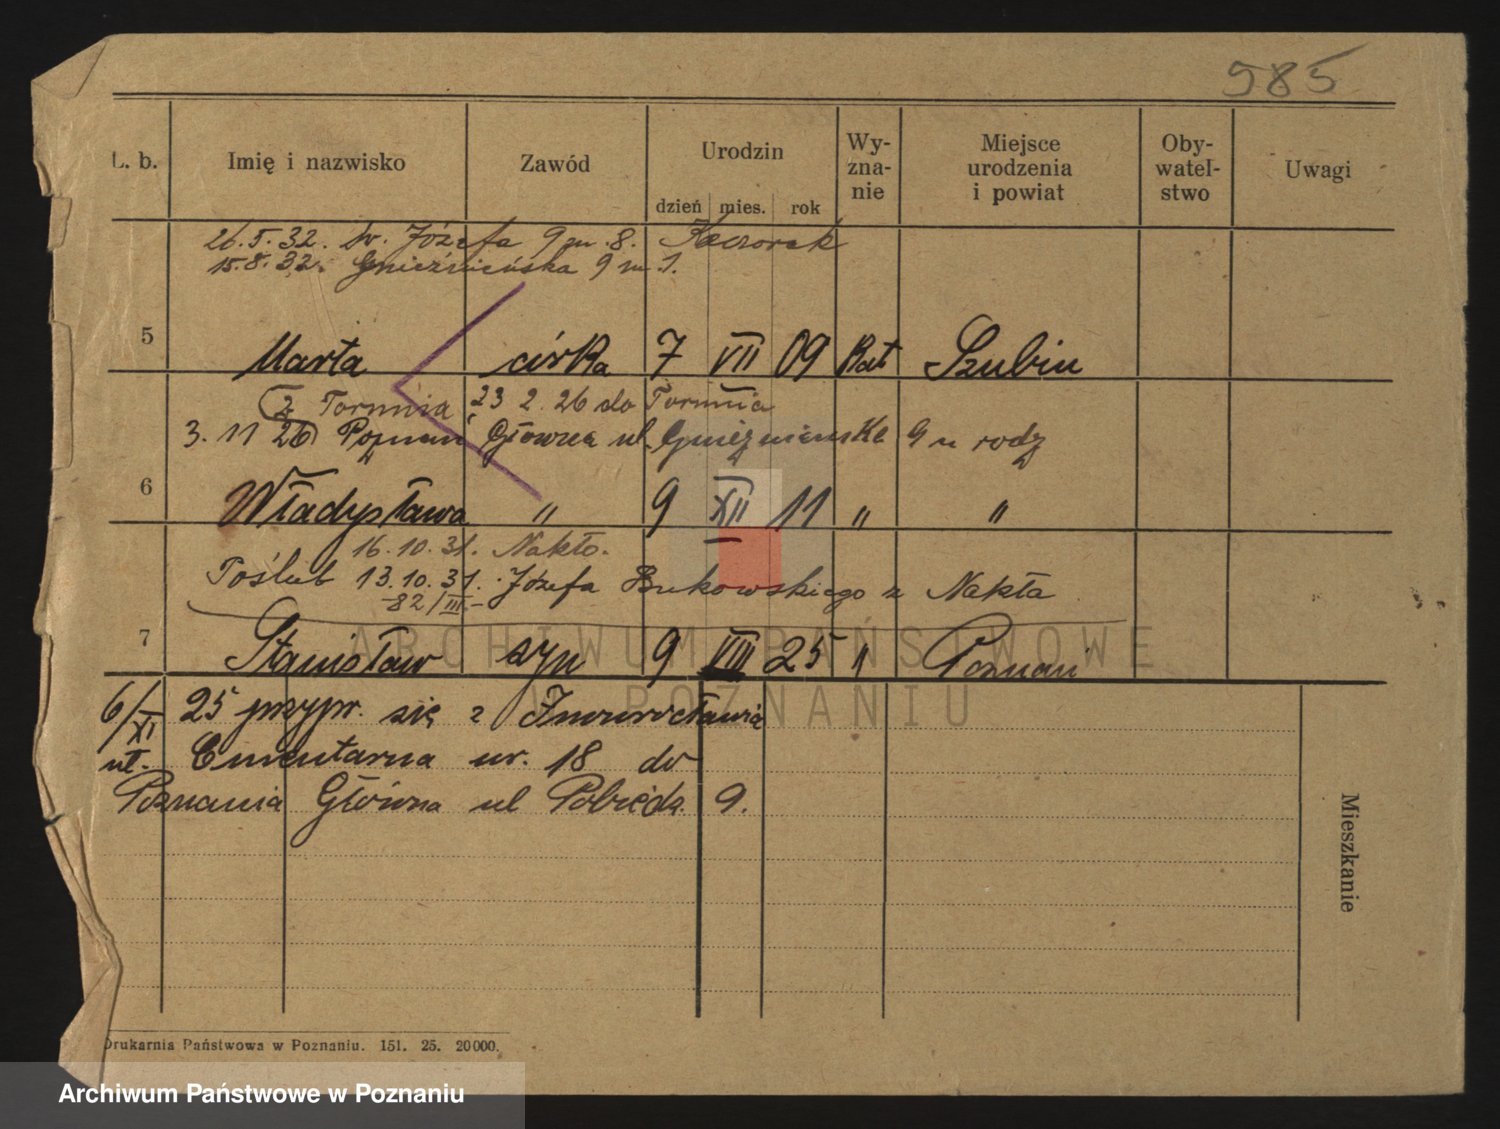 985
L. b. Imię i nazwisko Zawód Urodzin dzień mies. rok Wy-zna-nie Miejsce urodzenia i powiat Oby-watel-stwo Uwagi
26.5.32. św. Józefa 9 m. 8. Kaczorek
15.8.32. Gnieźnieńska 9 m. 1.
5 Marta córka 7 VII 09 Kat Szubin
z Torunia 23 2. 26 do Torunia
3. 11 26 Poznań Główna ul. Gnieźnieńska 9 u rodz
6 Władysława " 9 XII 11 " "
16.10.31. Nakło.
Poślub 13.10.31. Józefa Bukowskiego z Nakła
82/III.-
7 Stanisław syn 9 VIII 25 " Poznań
ARCHIWUM PAŃSTWOWE
W POZNANIU
6/XI 25 przypr. się z Inowrocławia
ul. Cmentarna nr. 18 do
Poznania Główna ul Pobiedz. 9.
Mieszkanie
Drukarnia Państwowa w Poznaniu. 151. 25. 20000.
Archiwum Państwowe w Poznaniu